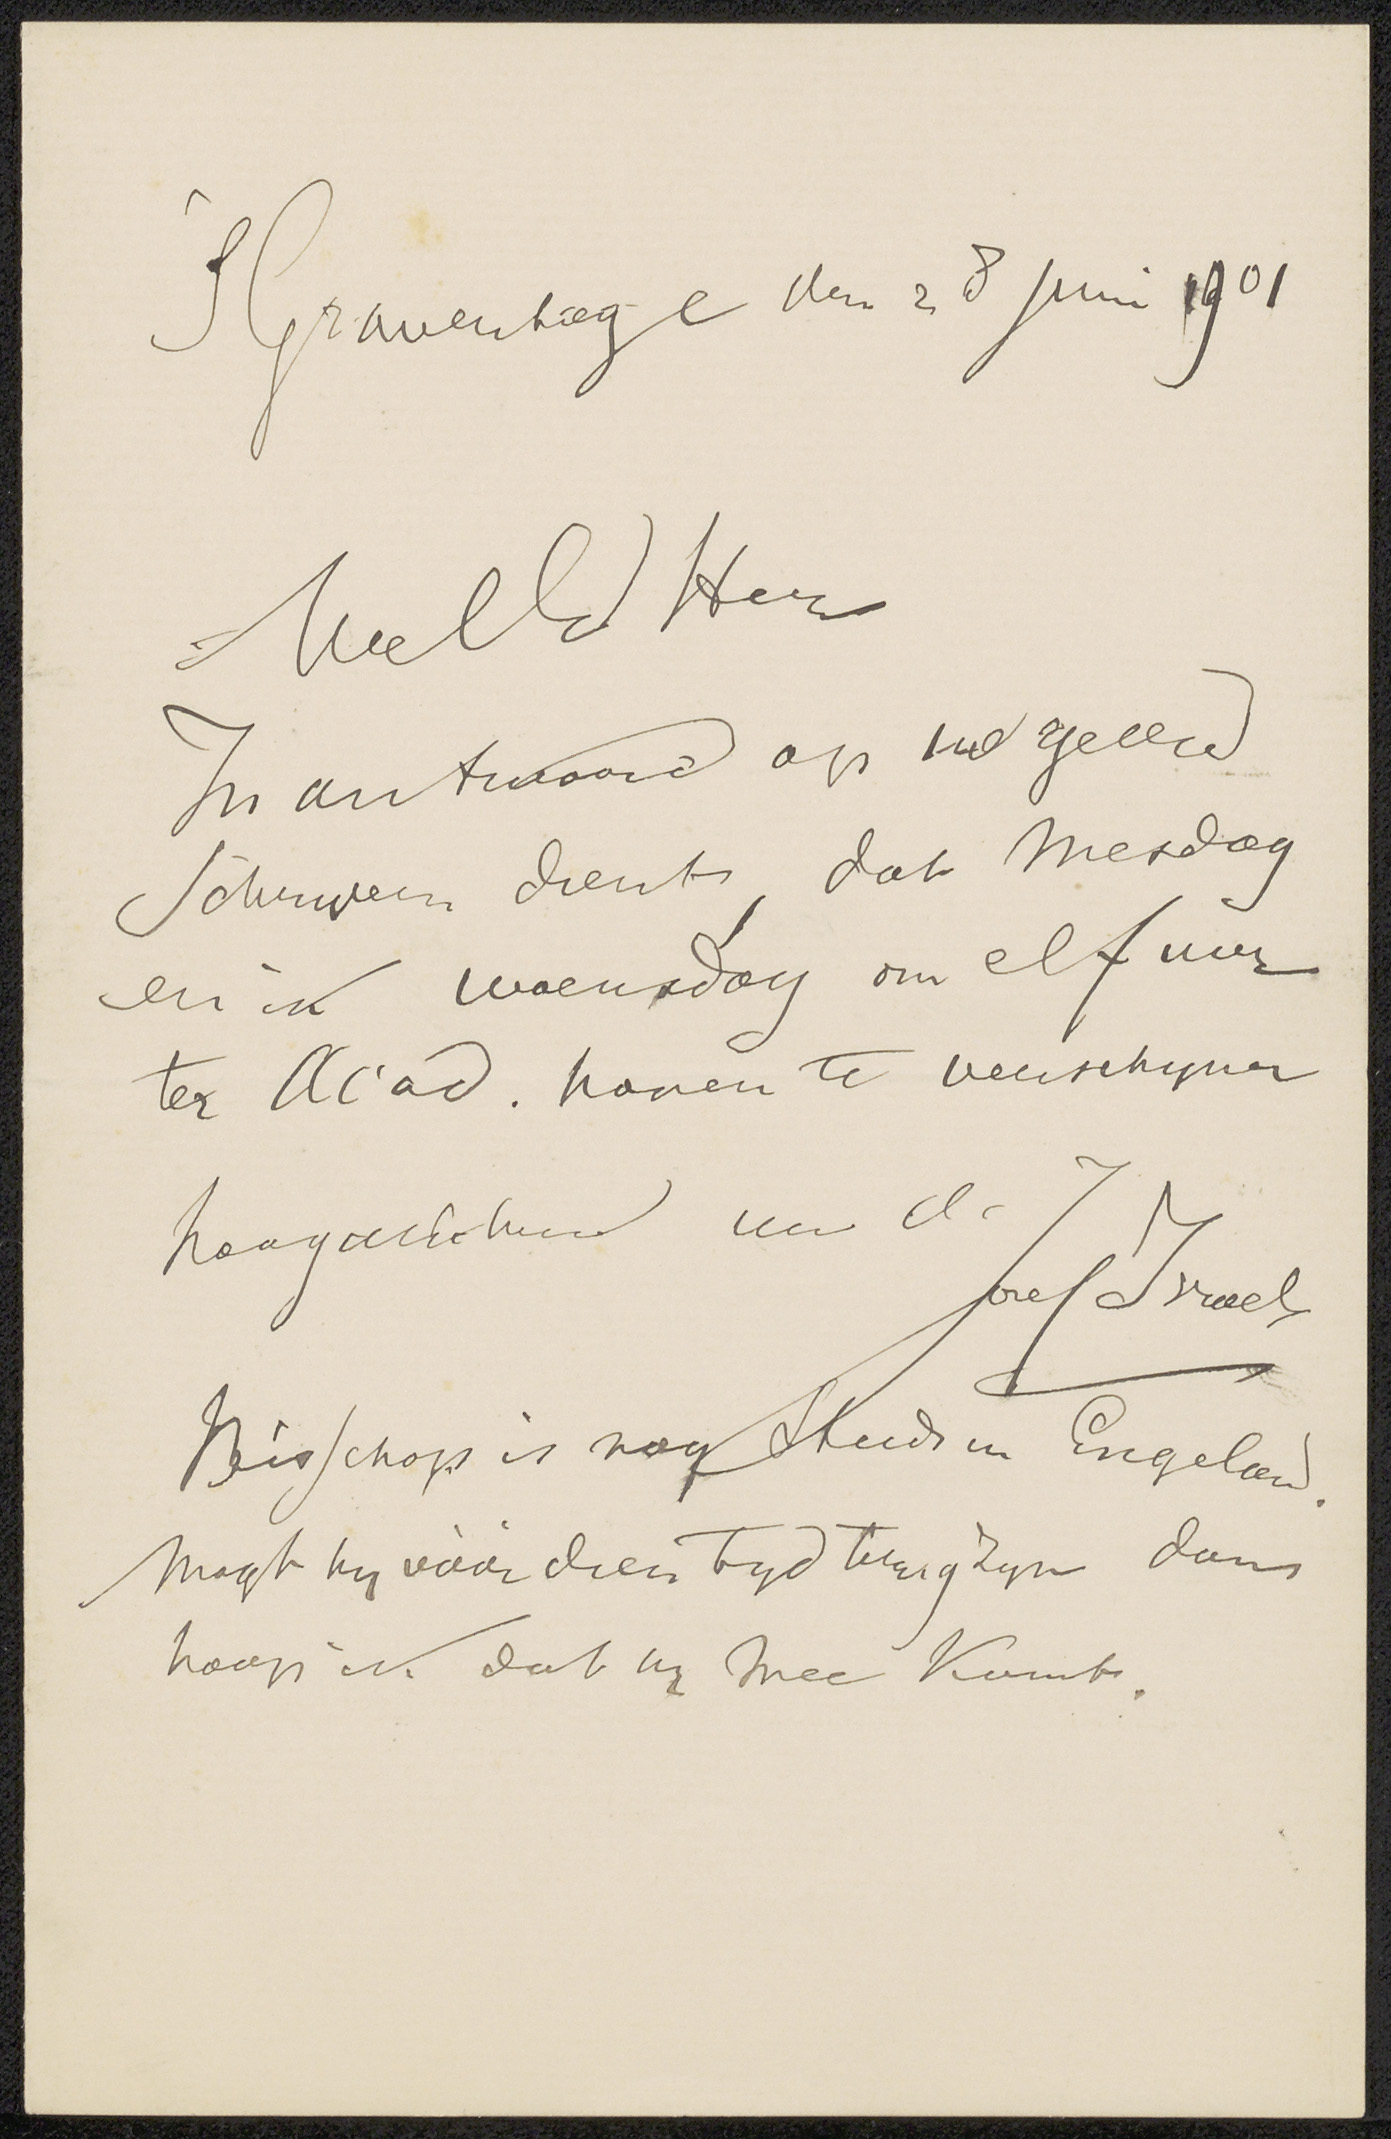 'S Gravenhage den 28 Juni 1901
WelEd Heer
In antwoord op uw geeerd
Schryven dient, dat Mesdag
en ik woensdag om elf uur
ter Acad. hopen te verschynen
hoogachtend uw d.
Jozef Israels
Bisschop is nog steeds in Engeland.
Mogt hy vóór dien tyd terug zyn dan
hoop ik dat hy mee komt.